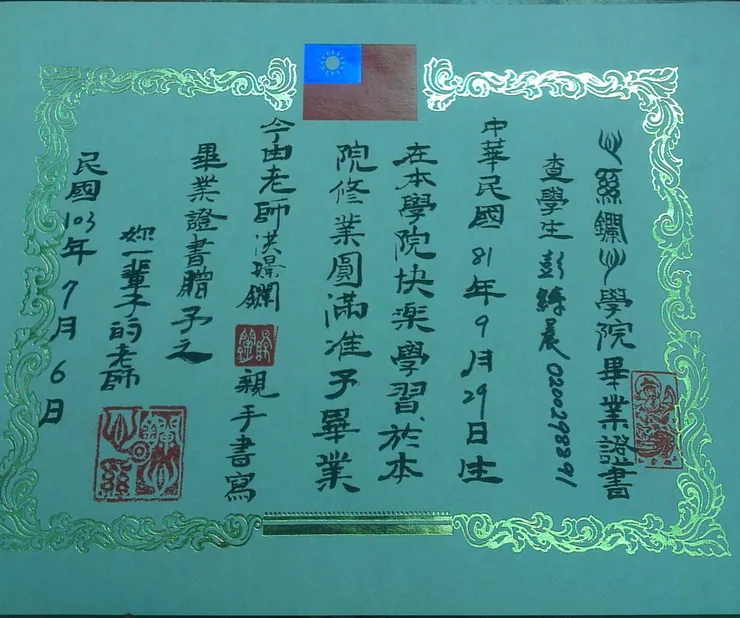 絲鑭學院畢業證書
查學生彭絲晨0200298891
中華民國81年9月29日生
在本學院快樂學習、於本
院修業圓滿准予畢業
今由老師洪鑭 親手書寫
畢業證書贈予之
妳一輩子的老師
民國103年7月6日